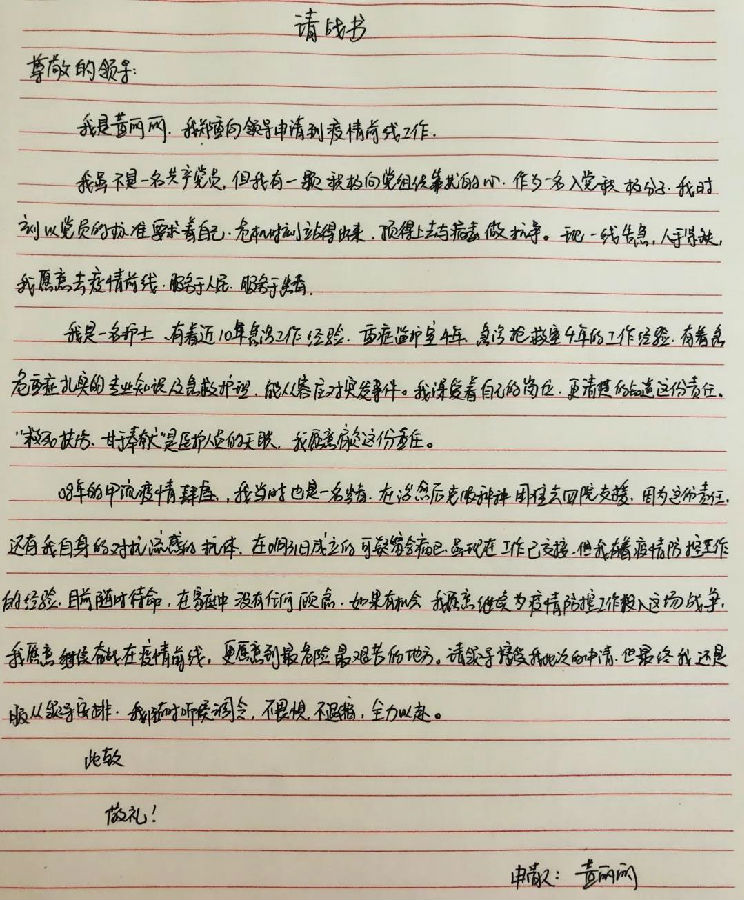 请战书
尊敬的领导:
我是黄丽丽,我郑重向领导申请到疫情前线工作.
我虽不是一名共产党员,但我有一颗积极向党组织靠拢的心.作为一名入党积极分子.我时
刻以党员的标准要求着自己.危机时刻站得出来,顶得上去与病毒做抗争。现一线告急,人手紧缺,
我愿意去疫情前线.服务于人民.服务于患者.
我是一名护士,有着近10年急诊工作经验.重症监护室4年,急诊抢救室4年的工作经验.有着急
危重症扎实的专业知识及急救护理,能从容应对突发事件。我深爱着自己的岗位,更清楚的知道这份责任.
"救死扶伤.甘于奉献"是医护人员的天职,我愿意履行这份责任。
09年的甲流疫情肆虐,我当时也是一名患者.在治愈后克服种种困难去四院支援,因为这份责任,
还有我自身的对抗流感的抗体.在1月31日成立的可疑发令病区.虽现在工作已交接.但我有着疫情防控工作
的经验,目前随时待命,在家中没有任何顾虑.如果有机会 我愿意继续为疫情防控工作投入这场战争,
我愿意继续奋战在疫情前线,更愿意到最危险最艰苦的地方。请领导接受我此次的申请.但最终我还是
服从领导安排.我随时听候调令,不畏惧,不退缩,全力以赴。
此致
敬礼!
申请人:黄丽丽